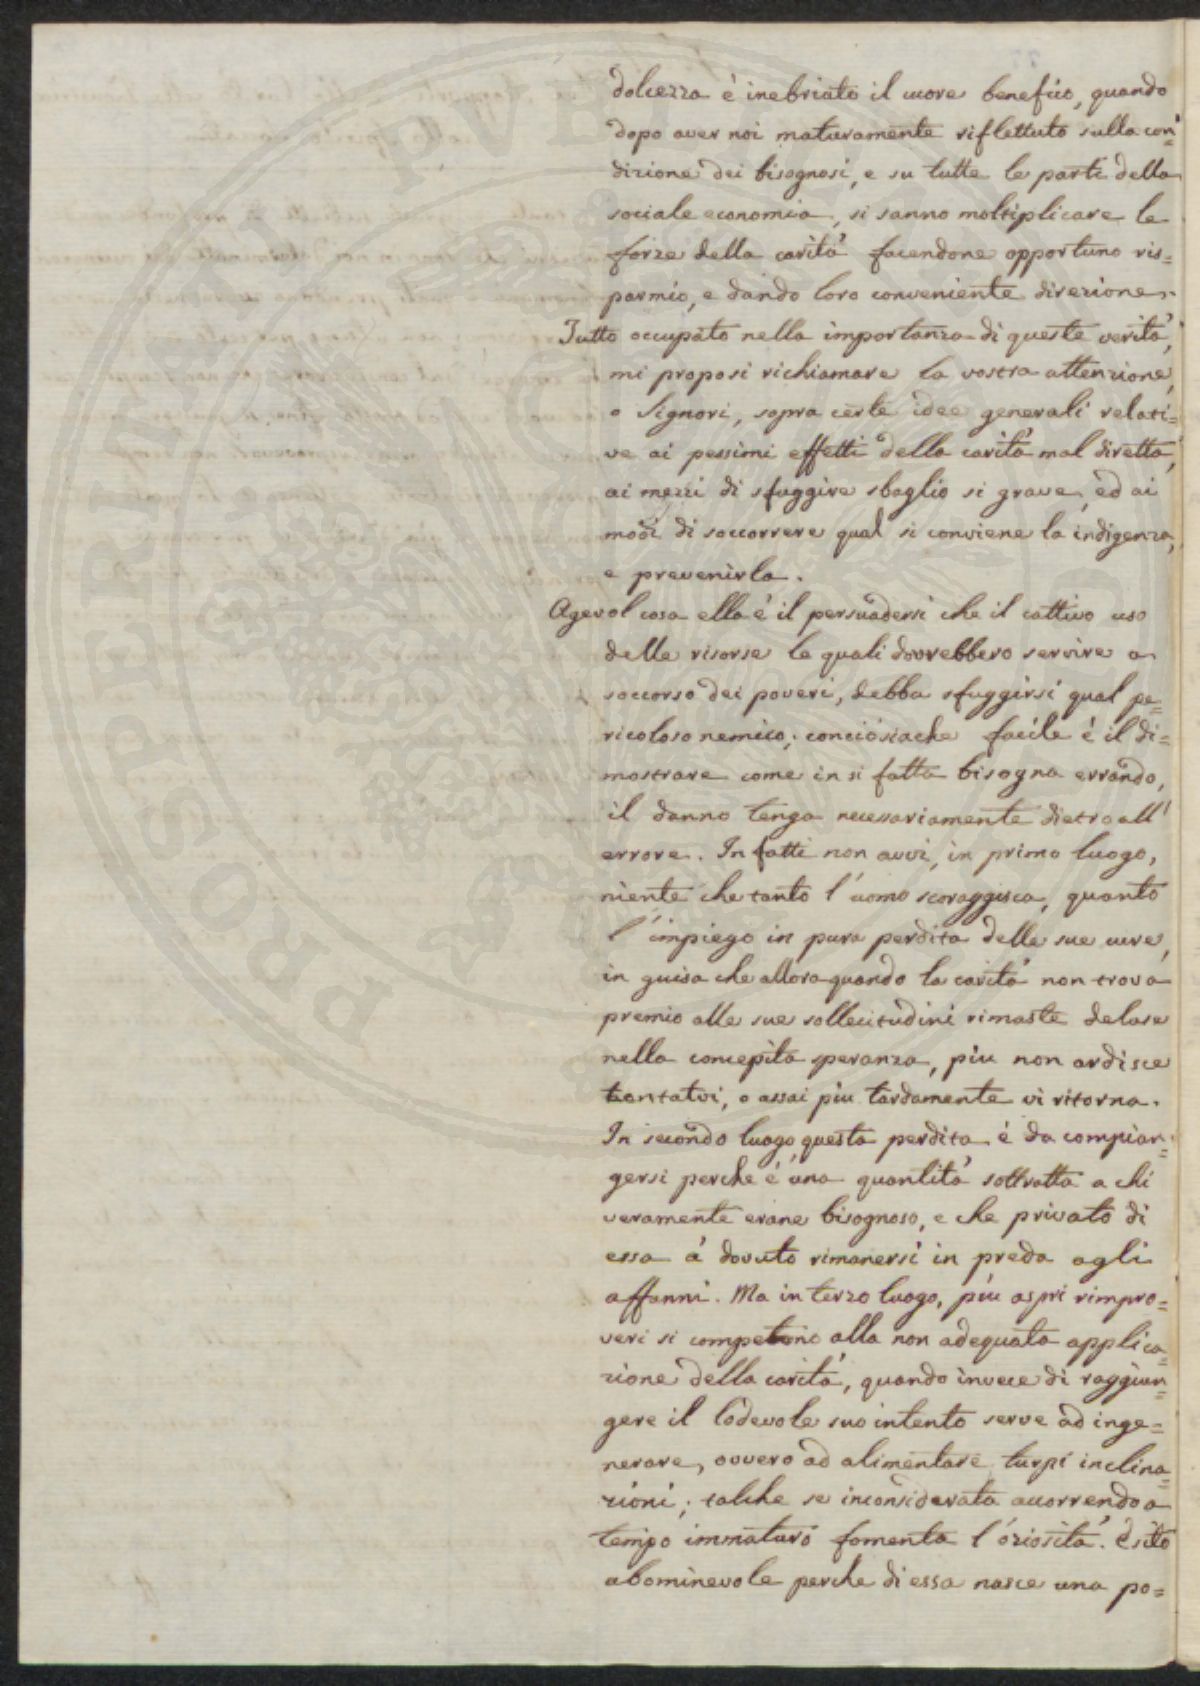 dolcezza è inebriato il cuore benefico, quando
dopo aver noi maturamente riflettuto sulla con=
dizione dei bisognosi, e su tutte le parti della
sociale economia, si sanno moltiplicare le
forze della carità facendone opportuno ris=
parmio, e dando loro conveniente direzione.
Tutto occupato nella importanza di queste verità,
mi proposi richiamare la vostra attenzione,
o Signori, sopra certe idee generali relati=
ve ai pessimi effetti della carità mal diretta,
ai mezzi di sfuggire sbaglio si grave, ed ai
modi di soccorrere qual si conviene la indigenza,
e prevenirla.
Agevol cosa ella è il persuadersi che il cattivo uso
delle risorse le quali dovrebbero servire a
soccorso dei poveri, debba sfuggirsi qual pe=
ricoloso nemico; conciosiache facile è il di=
mostrare come in si fatta bisogna errando,
il danno tenga necessariamente dietro all'
errore. In fatti non avvi, in primo luogo,
niente che tanto l'uomo scoraggisca, quanto
l'impiego in pura perdita delle sue cure,
in guisa che allora quando la carità non trova
premio alle sue sollecitudini rimaste deluse
nella concepita speranza, piu non ardisce
tentarvi, o assai piu tardamente vi ritorna.
In secondo luogo questa perdita è da compian=
gersi perche è una quantità sottratta a chi
veramente erane bisognoso, e che privato di
essa à dovuto rimanersi in preda agli
affanni. Ma in terzo luogo, piu aspri rimpro=
veri si competono alla non adequata applica=
zione della carità, quando invece di raggiun=
gere il lodevole suo intento serve ad inge=
nerare, ovvero ad alimentare turpi inclina=
zioni; talche se inconsiderata accorrendo a
tempo immaturo fomenta l'oziosità. Esito
abominevole perche di essa nasce una po=
PROSPERI PVBL